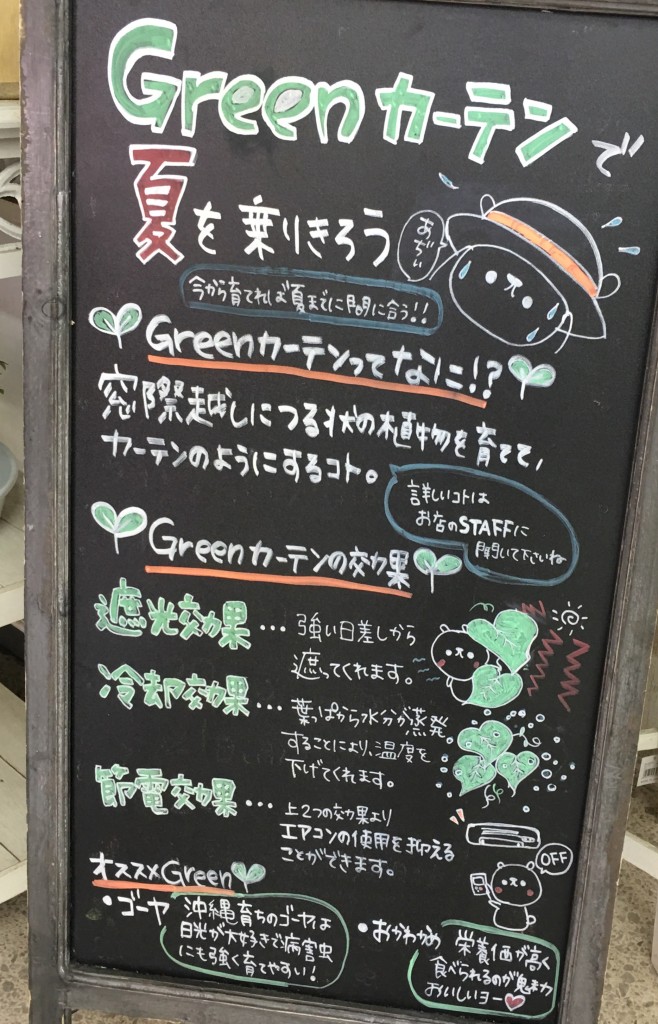 Greenカーテンで
夏を乗りきろう
あぢぃ
今から育てれば夏までに間に合う!!
Greenカーテンってなに!?
窓際越しにつる状の植物を育てて、
カーテンのようにするコト。
詳しいコトは
お店のSTAFFに
聞いて下さいね
Greenカーテンの効果
遮光効果…強い日差しから
遮ってくれます。
冷却効果…葉っぱから水分が蒸発
することにより、温度を
下げてくれます。
節電効果…上2つの効果より
エアコンの使用を抑える
ことができます。
OFF
オススメGreen
・ゴーヤ
沖縄育ちのゴーヤは
日光が大好きで病害虫
にも強く育てやすい!
・おかわかめ
栄養価が高く
食べられるのが魅力
おいしいヨー♥